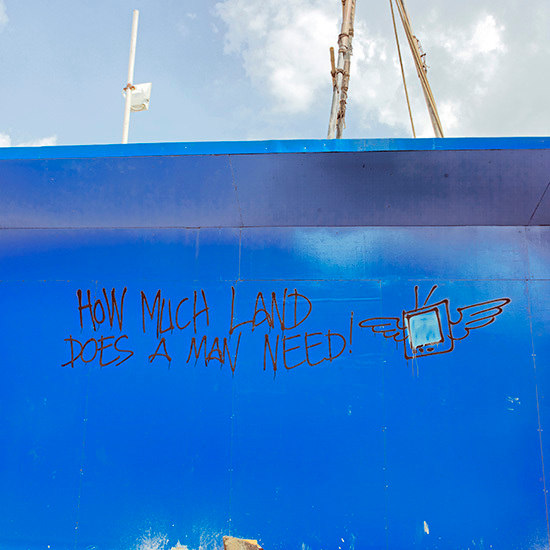 HOW MUCH LAND
DOES A MAN NEED!